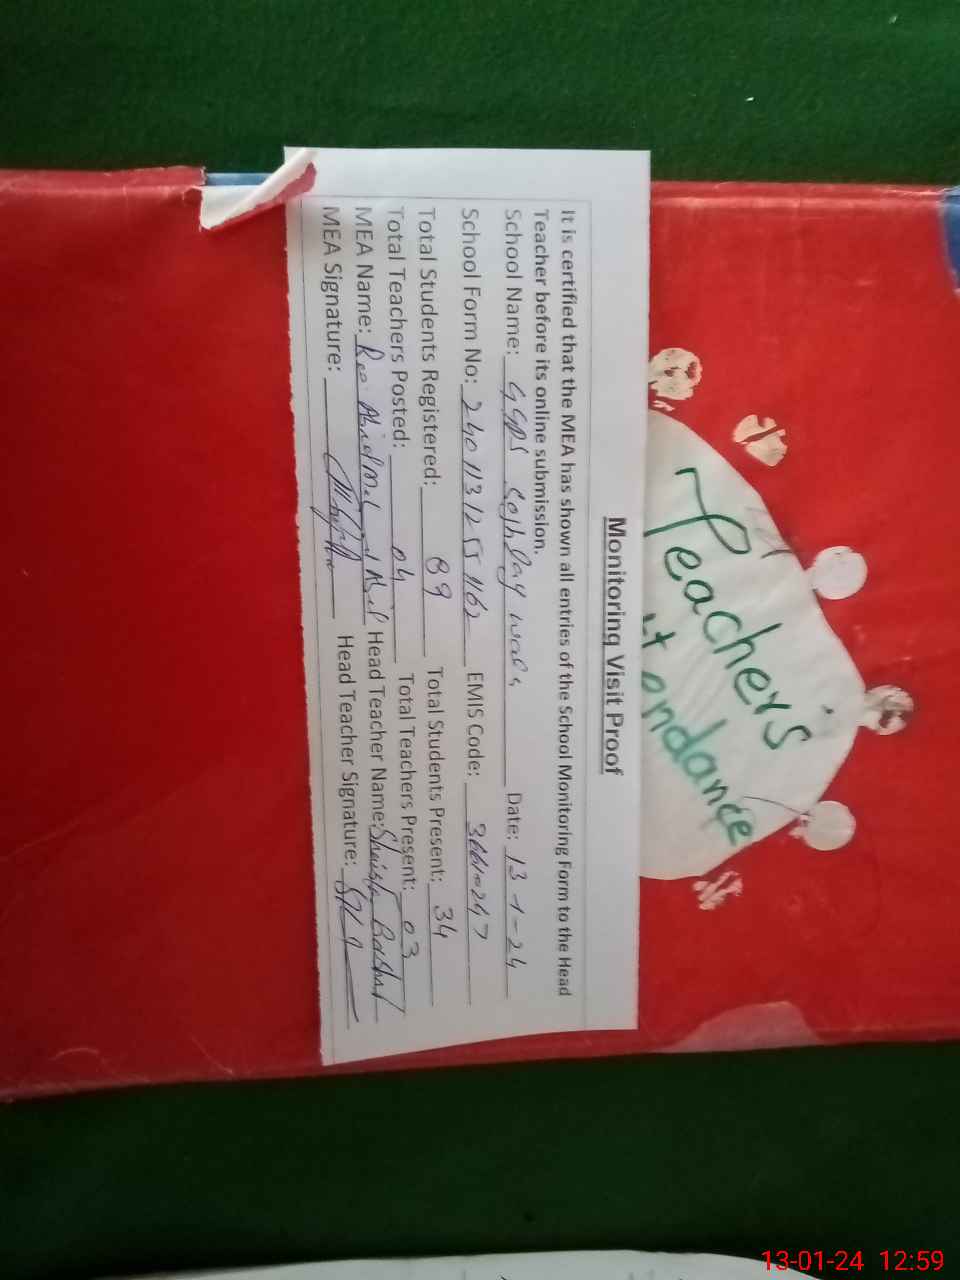 Teacher's
Attendance
Monitoring Visit Proof
It is certified that the MEA has shown all entries of the School Monitoring Form to the Head
Teacher before its online submission.
School Name: GGPS Date: 13-1-24
School Form No: EMIS Code:
Total Students Registered: 89 Total Students Present: 34
Total Teachers Posted: 04 Total Teachers Present: 03
MEA Name: Head Teacher Name: Shaista Bashir
MEA Signature: Head Teacher Signature:
13-01-24 12:59